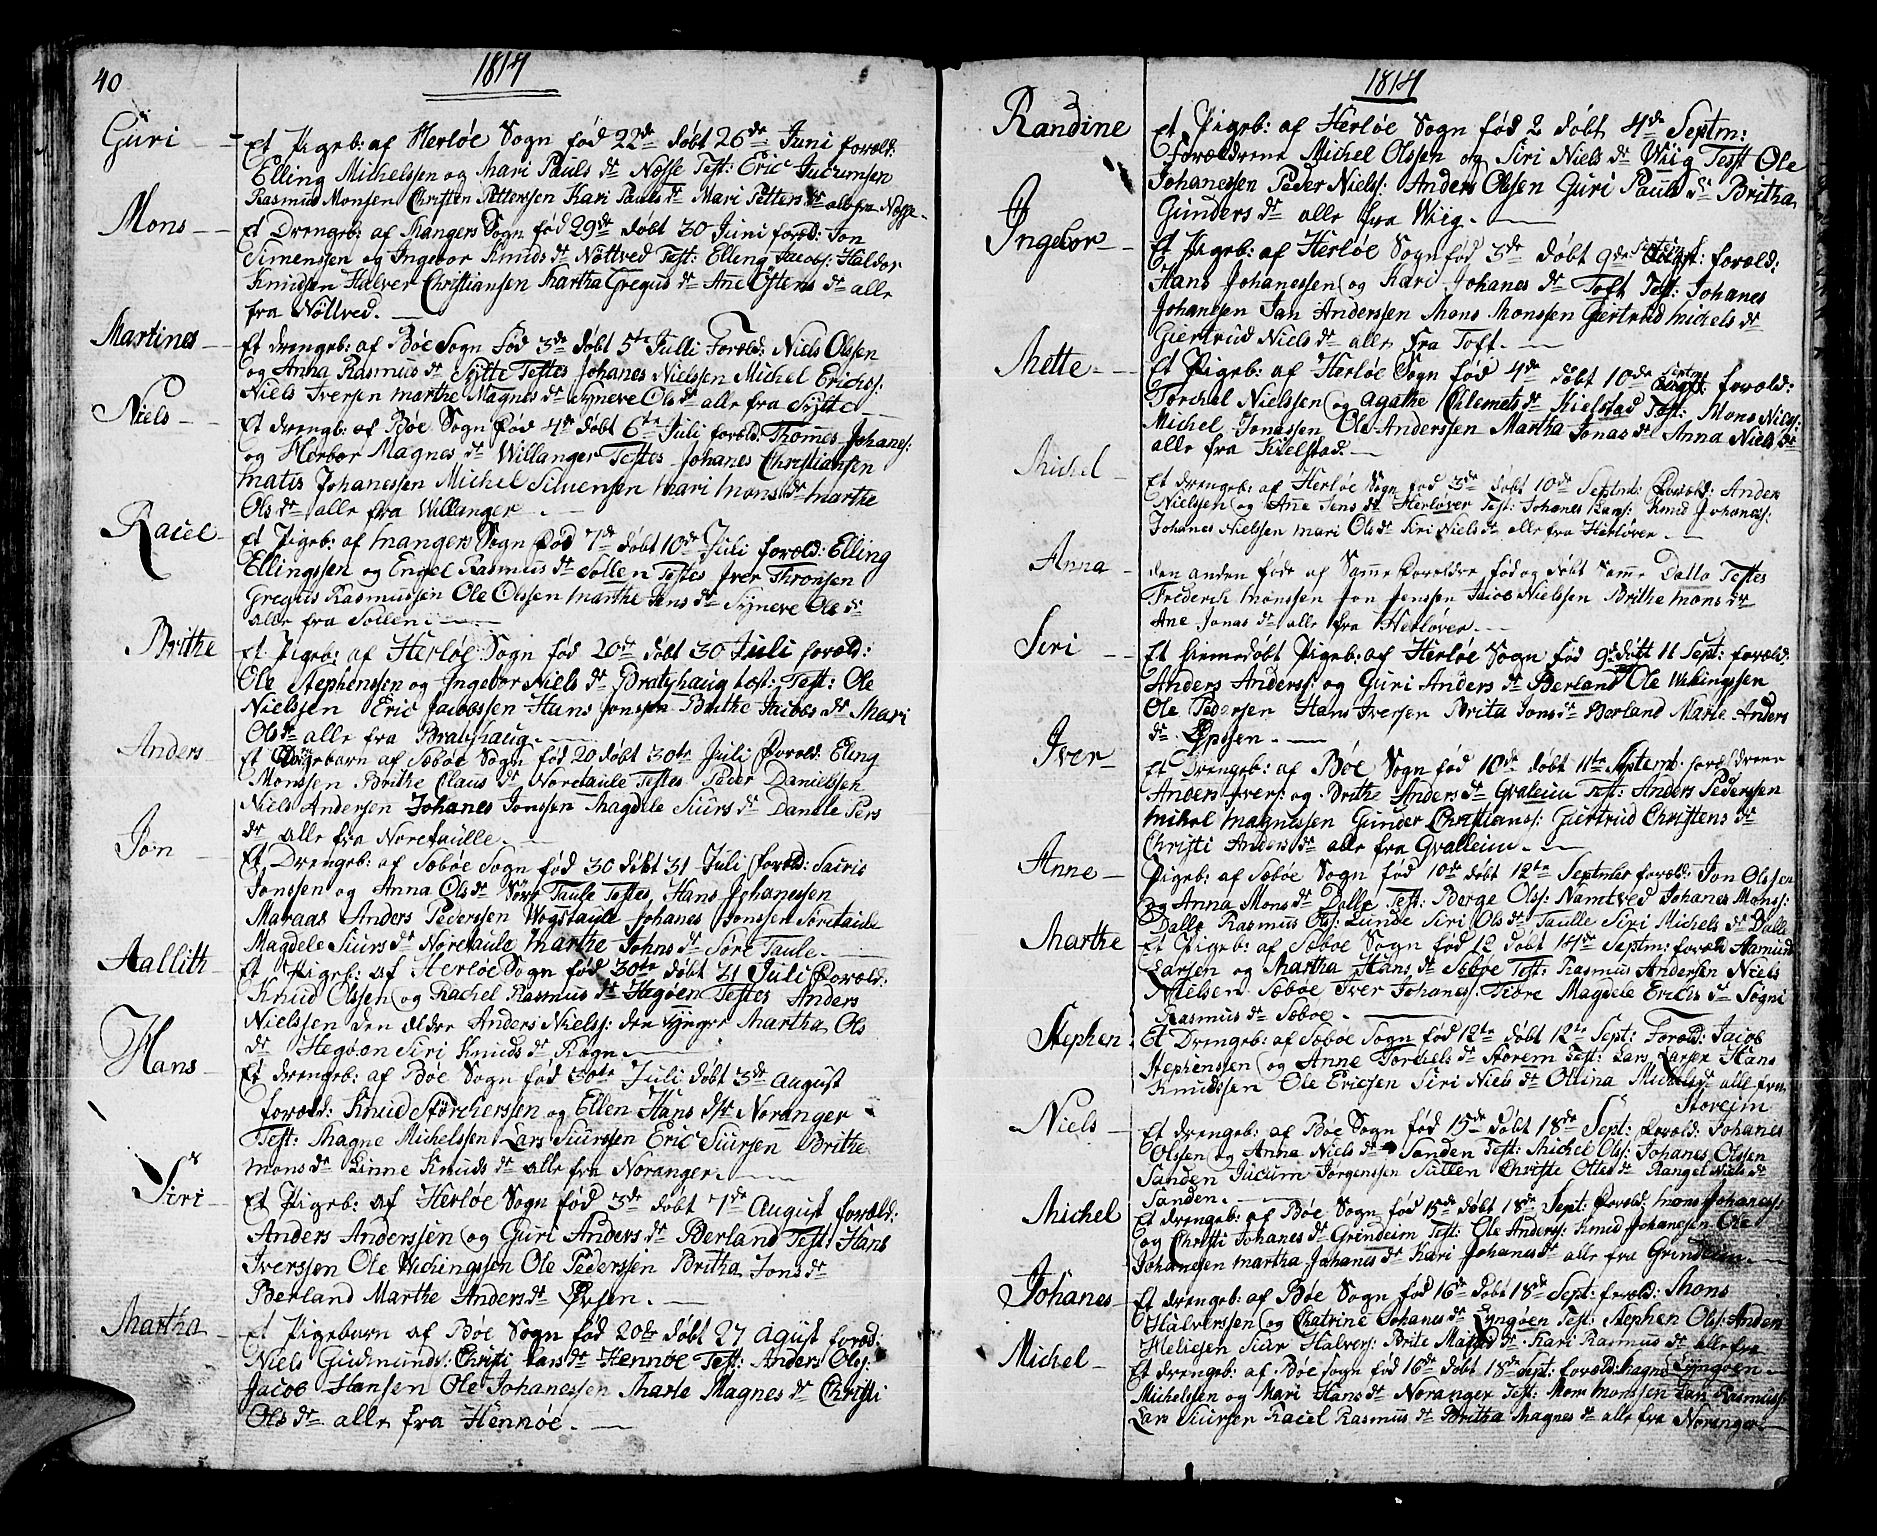 40
1814
Guri - Et Pigeb: af Herløe Sogn fød 22de døbt 26de Juni foræld:
Elling Michelssen og Mari Pauls dr Næsse Test: Eric Jucumsen
Rasmus Monsen Christen Pettersen Kari Pauls dr Mari Petters dr alle fra Næsse
Mons - Et Drengeb: af Mangers Sogn fød 29de døbt 30 Juni foræld: Jon
Simenssen og Ingebor Knuds dr Nöttved Test: Elling Jacobs: Haldor
Knudsen Halver Christiansen Martha Gregus dr Ane Ostens dr alle
fra Nöttved.
Martines - Et drengeb: af Bøe Sogn fød 3de døbt 5te Julli Foræld: Niels Olssen
og Anna Rasmus dr Sÿtte Testes Johanes Nielssen Michel Erichs:
Niels Iversen Marthe Magnes dr Sÿneve Ols dr alle fra Sÿtte
Niels - Et drengb: af Bøe Sogn fød 4de døbt 6te Juli foræld: Thommes Johanes:
og Herbor Magnes dr Willanger Testes Johanes Christiansen
Matis Johanessen Michel Simensen Mari Mons dr Marthe
Ols dr alle fra Willanger
Raciel - Et Pigeb: af Mangers Sogn fød 7de døbt 10de Juli foræld: Elling
Ellingssen og Engel Rasmus dr Sollen Testes Iver Thronsen
Gregus Rasmussen Ole Olssen Marthe Jens dr Sÿneve Ole dr
alle fra Sollen
Brithe Et Pigeb: af Herløe Sogn fød 20de døbt 30 Juli foræld:
Ole Stephenssen og Ingebor Niels dr Bratshaug Test: Ole
Nielssen Eric Jacobssen Hans Jonssen Brithe Jacobs dr Mari
Ols dr alle fra Bratshaug.
Anders - Et Drengebarn af Sæbøe Sogn fød 20 døbt 30te Juli foræld: Eling
Monssen Brithe Claus dr Noretaule Testes Peder Danielssen
Niels Andersen Johanes Jonssen Magdele Siurs dr Danele Pers
dr alle fra Noretaulle.
Jon - Et Drengeb: af Sæbøe Sogn fød 30 døbt 31 Juli foræld:
Jonssen og Anna Ols dr Söre Taule Testes Hans Johanessen
Maraas Anders Pederssen Wogstaule Johanes Jonssen Soretaule
Magdele Siurs dr Noretaule Marthe Johns dr Söre Taule.
Aallith - Et Pigeb: af Herløe Sogn fød 30te døbt 31 Juli foræld:
Knud Olssen og Rachel Rasmus dr Hegøen Testes Anders
Nielssen den ældre Anders Niels: den ÿnger Martha Ols
dr Hegøen Siri Knuds dr
Hans - Et drengeb: af Bøe Sogn fød 30te Juli døbt 3de August
foræld: Knud Störcherssen og Ellen Hans dr Noranger
Test: Magne Michelssen Lars Siurssen Eric Siursen Brithe
Mons dr Linne Knuds dr alle fra Noranger.
Siri - Et Pigeb: af Herløe Sogn fød 3de døbt 7de August foræld:
Anders Anderssen og Guri Anders dr Berland Test: Hans
Iverssen Ole Wichingssen Ole Pederssen Britha Jons dr
Berland Marthe Anders dr Øpsen.
Martha - Et Pigebarn af Bøe Sogn fød 20de døbt 27 Agust foræld:
Niels Gudmunds: Christi Lars dr Hennøe Test: Anders Ols:
Jacob Hansen Ole Johanessen Marte Magnes dr Christi
Ols dr alle fra Hennøe.
1814
Randine Et Pigeb: af Herløe Sogn fød 2 døbt 4de Septm:
Forældrene Michel Olssen og Siri Niels dr Wiig Test Ole
Johanessen Peder Niels: Anders Olssen Guri Pauls dr Britha
Gunders dr alle fra Wiig.
Ingebor - Et Pigeb: af Herløe Sogn fød 3de døbt 9de Septem foræld:
Hans Johanessen og Kari Johanes dr Toft Test: Johanes
Johanesen Jan Anderssen Mons Monssen Giertrud Michels dr
Giertrud Niels dr alle fra Toft.
Mette - Et Pigeb: af Herløe Sogn fød 4de døbt 10de Septm foræld:
Torchel Nielssen og Agathe Chlemets dr Kielstad Test: Mons Niels:
Michel Jonassen Ole Anderssen Martha Jonas dr Anna Niels dr
alle fra Kielstad.
Michel - Et drengeb: af Herløe Sogn fød 3de døbt 10de Septm: foræld: Anders
Nielsen og Ane Jens dr Herløver Test: Johanes Lars: Knud Johaness:
Johanes Nielssen Mari Ols dr Siri Niels dr alle fra Herløver.
Anna - den anden føde af Samme Foreldre fød og døbt Samme Datto Testes
Frederik Monssen Jon Jenssen Jacob Nielssen Brithe Mons dr
Ane Jonas dr alle fra Herløver.
Siri - Et hiemedøbt Pigeb: af Herløe Sogn fød 9de døbt 11 Sept: foræld:
Anders Anders: og Guri Anders dr Berland Ole Wikingssen
Ole Pedersen Hans Iversen Brita Jons dr Berland Marte Anders
dr Øpsen.
Iver - Et Drengeb: af Bøe Sogn fød 10de døbt 11te Septemt: forældrene
Anders Ivers: og Brithe Anders dr Gralleim Test: Anders Pederssen
Mikel Magnessen Gunder Christians: Giertrud Christens dr
Christi Anders dr alle fra Gralleim.
Anne - Pigeb: af Sæbøe Sogn fød 10de døbt 12te September foræld: Jon Olssen
og Anna Mons dr Dalle Test: Børge Ols: Namtved Johanes Mons:
Dalle Rasmus Ols: Lunde Siri Ols dr Taulle Siri Michels dr Dalle
Marthe - Et Pigeb: af Sæbøe Sogn fød 12 døbt 14de Septm: foræld Aamund
Larsen og Martha Hans dr Sæbøe Test: Rasmus Andersen Niels
Nielsen Sæbøe Iver Johanes: Fiøre Magdele Erichs dr Søgni
Rasmus dr Sæbøe.
Stephen: Et Drengeb: af Sæbøe Sogn fød 12te døbt 12te Sept: Foræld: Jacob
Stephenssen og Anne Torchels dr Storem Test: Lars Larsen Hans
Knudssen Ole Ericsen Siri Niels dr Ollina Michels dr alle fra
Storeim
Niels - Et drengeb: af Bøe Sogn fød 15de døbt 18de Sept: foræld: Johanes
Olssen og Anna Niels dr Sanden Test: Michel Ols: Johanes Olssen
Sanden Jucum Jørgenssen Sutlen Christe Ottes dr Rangel Niels dr
Sanden.
Michel Et drengeb: af Bøe Sogn fød 15de døbt 18de Sept: foræld: Mons Johaness:
og Christi Johanes dr Grindeim Test: Ole Anders: Knud Johanesen Ole
Johanesen Martha Johanes dr Kari Johanes dr alle fra Grindeim
Johanes - Et drengeb: af Bøe Sogn fød 16de døbt 18de Sept: foræld: Mons
Halverssen og Chatrine Johanes dr Lyngøen Test: Stephen Ols: Anders
Heliesen Siur Halvers: Brite Mattias dr Kari Rasmus dr alle fra
Lyngøen
Michel - Et drengeb: af Bøe Sogn fød 16de døbt 18de Sept: foræld: Magne
Michelsen og Mari Hans dr Noranger Test: Mons Monssen Lars Rasmuss:
Lars Siursen Raciel Rasmus dr Britha Magnes dr alle fra Noranger